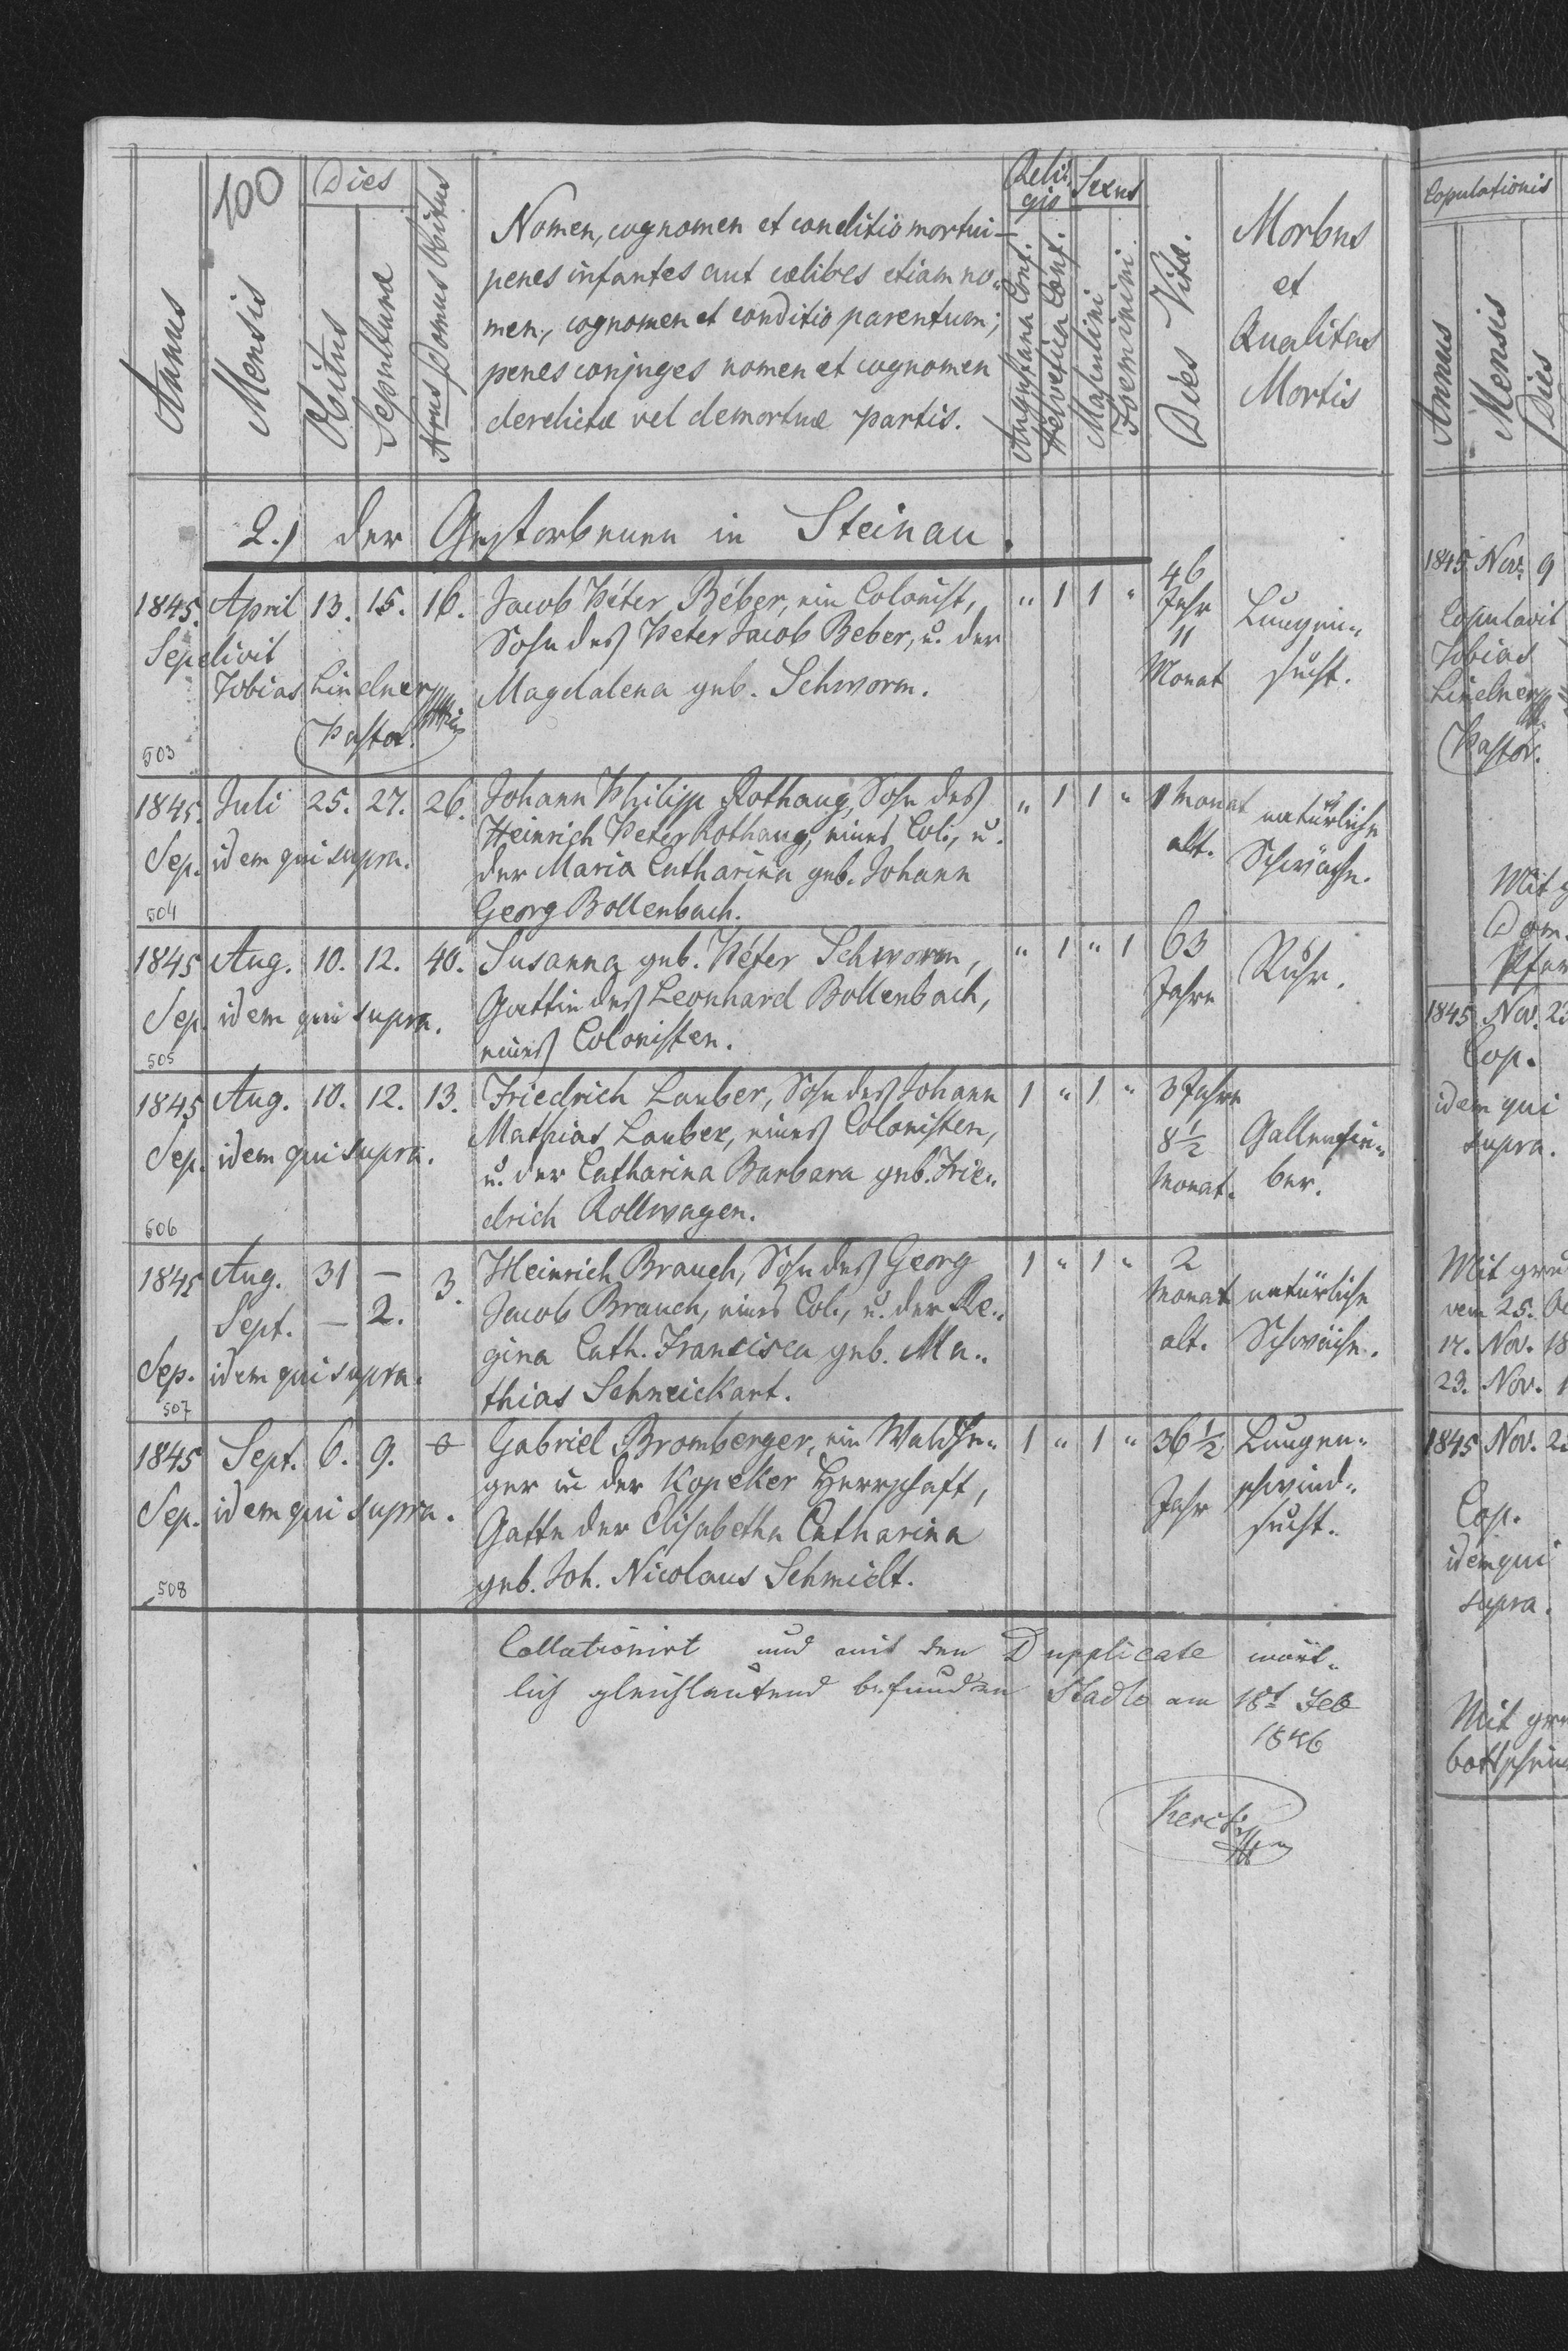 100
Dies
Religio
Sexus
Annus
Mensis
Obitus
Sepulturæ
Nrus Domus Obitus
Nomen, cognomen et conditio mortui –
penes infantes aut cælibes etiam no„
men, cognomen et conditio parentum;
penes conjuges nomen et cognomen
derelictæ vel demortuæ partis.
Augustana Conf.
Helvetica Conf.
Masculini
Foeminini
Dies Vitæ.
Morbus
et
Qualitas
Mortis
2.) der Gestorbenen in Steinau.
1845. April 13. 15. 16. Jacob Peter Beber, ein Colonist, „ 1 1 „ 46
Sepelivit Sohn deß Peter Jacob Beber, u. der Jahr 11 Lungen„
Tobias Lindner Magdalena geb. Schworm. Monat sucht.
Pastor.
503
1845. Juli 25. 27. 26. Johann Philipp Rothaug, Sohn deß „ 1 1 „ 1 Monat natürliche
Sep. idem qui supra. Heinrich Peter Rothaug, eines Col., u. alt. Schwäche.
der Maria Catharina geb. Johann
504 Georg Bollenbach.
1845 Aug. 10. 12. 40. Susanna geb. Peter Schworm, „ 1 „ 1 63 Ruhr.
Sep. idem qui supra. Gattin deß Leonhard Bollenbach, Jahre
505 eineß Colonisten.
1845 Aug. 10. 12. 13. Friedrich Lauber, Sohn deß Johann 1 „ 1 „ 3 Jahre
Sep. idem qui supra. Mathias Lauber, eineß Colonisten, 8½ Gallenfie„
u. der Catharina Barbara geb. Frie„ Monat. ber.
506 drich Rollwagen.
1845 Aug. 31 – 3. Heinrich Brauch, Sohn deß Georg 1 „ 1 „ 2
Sept. – 2. Jacob Brauch, eines Col., u. der Re„ Monat natürliche
Sep. idem qui supra. gina Cath. Francisca geb. Ma„ alt. Schwäche.
507 thias Schneickart.
1845 Sept. 6. 9. Gabriel Bromberger, ein Waldhe„ 1 „ 1 „ 36½ Lungen„
Sep. idem qui supra. ger in der Kopeker Herrschaft, Jahr schwind„
Gatte der Elisabetha Catharina sucht.
508 geb. Joh. Nicolaus Schmidt.
Collationirt und mit den Dupplicate wört„
lich gleichlautend befunden Stadlo am 18t Feb
1846
Copulationis
Annus
Mensis
Dies
1845 Nov. 9
Copulavit
Tobias
Lindner
Pastor.
Mit
Dom.
1845 Nov. 23
Cop.
idem qui
supra.
Mit
vom 25.
17. Nov. 18
23. Nov. 1
1845 Nov. 23
Cop.
idem qui
supra.
Mit